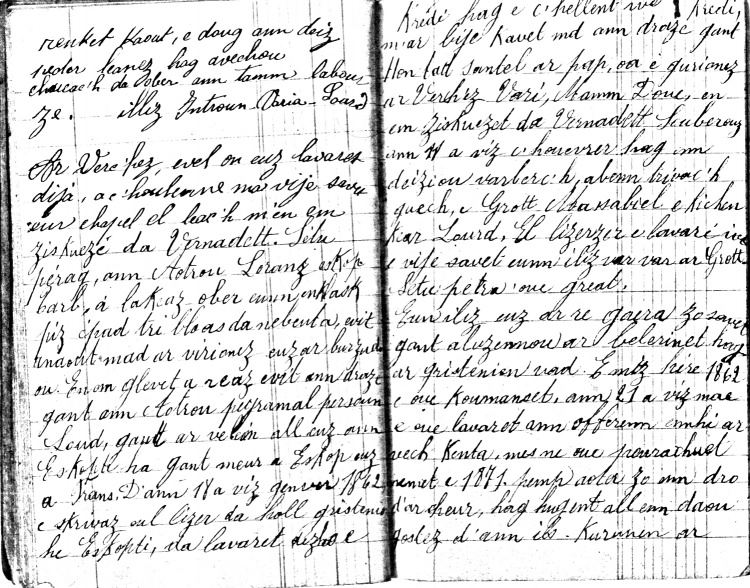 renket Kaout, e doug ann deiz
leanez hag avechou
da ober ann tamm labour
ze. illiz Introun Varia Lourd
Ar Verc'hez, evel on euz lavaret
dija, a c'houlenne ma vije savet
eur chapel el leac'h m'en em
ziskueze da Vernadett. Setu
pérag, ann Aotrou Loranz eskop
Tarb, a lakaz ober eunn enklask
piz epad tri bloas da nebeuta, evit
anaout mad ar virionez euz ar burzudou
ou. En em glevet a reaz evit ann draze
gant ann Aotrou peyramal persoun
Lourd, gant ar veleien all euz ann
Eskopti ha gant meur a Eskop euz
a Frans. D'ann 18 a viz genver 1862
e skrivaz eul lizer da holl gristenien
he Eskopti, da lavaret dezho e
Krédi hag e c'hellent ive Krédi,
m'ar bije Kavet mad ann draze gant
Hon tad santel ar pap, oa e gwirionez
ar Verc'hez Vari, Mamm Doue, en
em ziskuezet da Vernadett Souberous
ann 11 a viz c'houevrer hag ann
deiziou varlerc'h, abenn trivac'h
guech, e Grott Massabiel e kichen
Kear Lourd. El lizerze e lavare ive
e vije savet eunn iliz var ar Grott
Setu petra oue great.
Eun iliz euz ar re gaera zo savet
gant aluzennou ar belerinet hag
ar gristenien vad. E miz here 1862
e oue Koumanset, ann 21 a viz mae
e oue lavaret ann offerenn enhi ar
vech Kenta, mes ne oue peurachuet
nemet e 1871. pemp aoter zo ann dro
d'ar c'heur, hag hugent all enn daou
gostez d'ann iliz. Kurunen ar